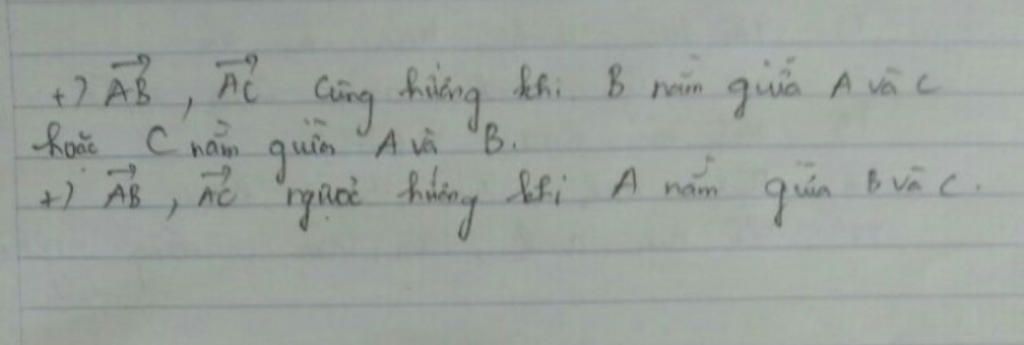 +) $\overrightarrow{AB}$, $\overrightarrow{AC}$ cùng hướng khi B nằm giữa A và C
hoặc C nằm giữa A và B.
+) $\overrightarrow{AB}$, $\overrightarrow{AC}$ ngược hướng khi A nằm giữa B và C.